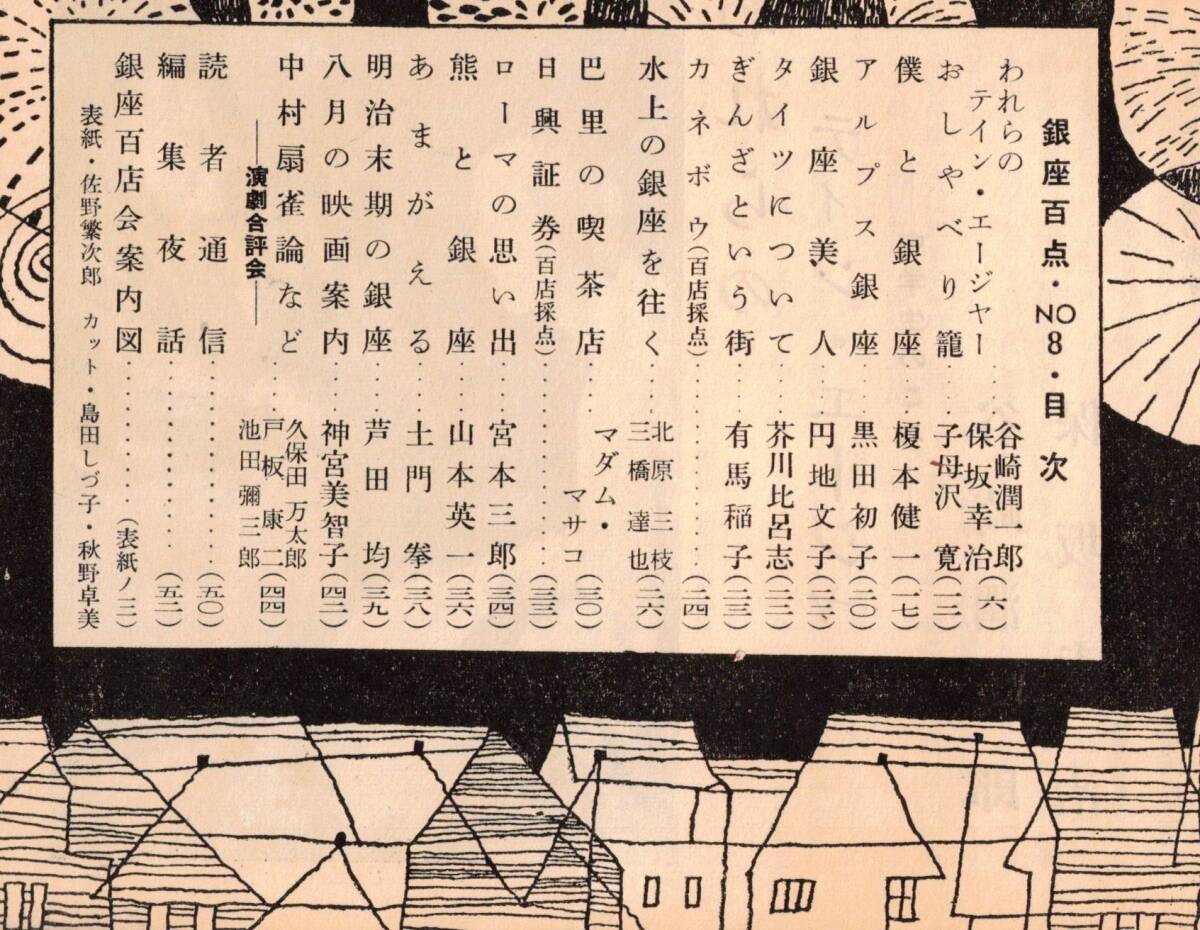 銀座百点・NO8・目次
われらの
テイン・エージャー……谷崎潤一郎
保坂幸治(六)
おしやべり籠……子母沢寛(一二)
僕と銀座……榎本健一(一七)
アルプス銀座……黒田初子(二〇)
銀座美人……円地文子(二一)
タイツについて……芥川比呂志(二二)
ぎんざという街……有馬稲子(二三)
カネボウ(百店採点)……(二四)
水上の銀座を往く……北原三枝
三橋達也(二六)
巴里の喫茶店……マダム・
マサコ(三〇)
日興証券(百店採点)……(三三)
ローマの思い出……宮本三郎(三四)
熊と銀座……山本英一(三六)
あまがえる……土門拳(三八)
明治末期の銀座……芦田均(三九)
八月の映画案内……神宮美智子(四二)
中村扇雀論など……久保田万太郎
戸板康二(四四)
池田彌三郎
―演劇合評会―
読者通信……(五〇)
編集夜話……(五二)
銀座百店会案内図……(表紙ノ三)
表紙・佐野繁次郎 カット・島田しづ子・秋野卓美